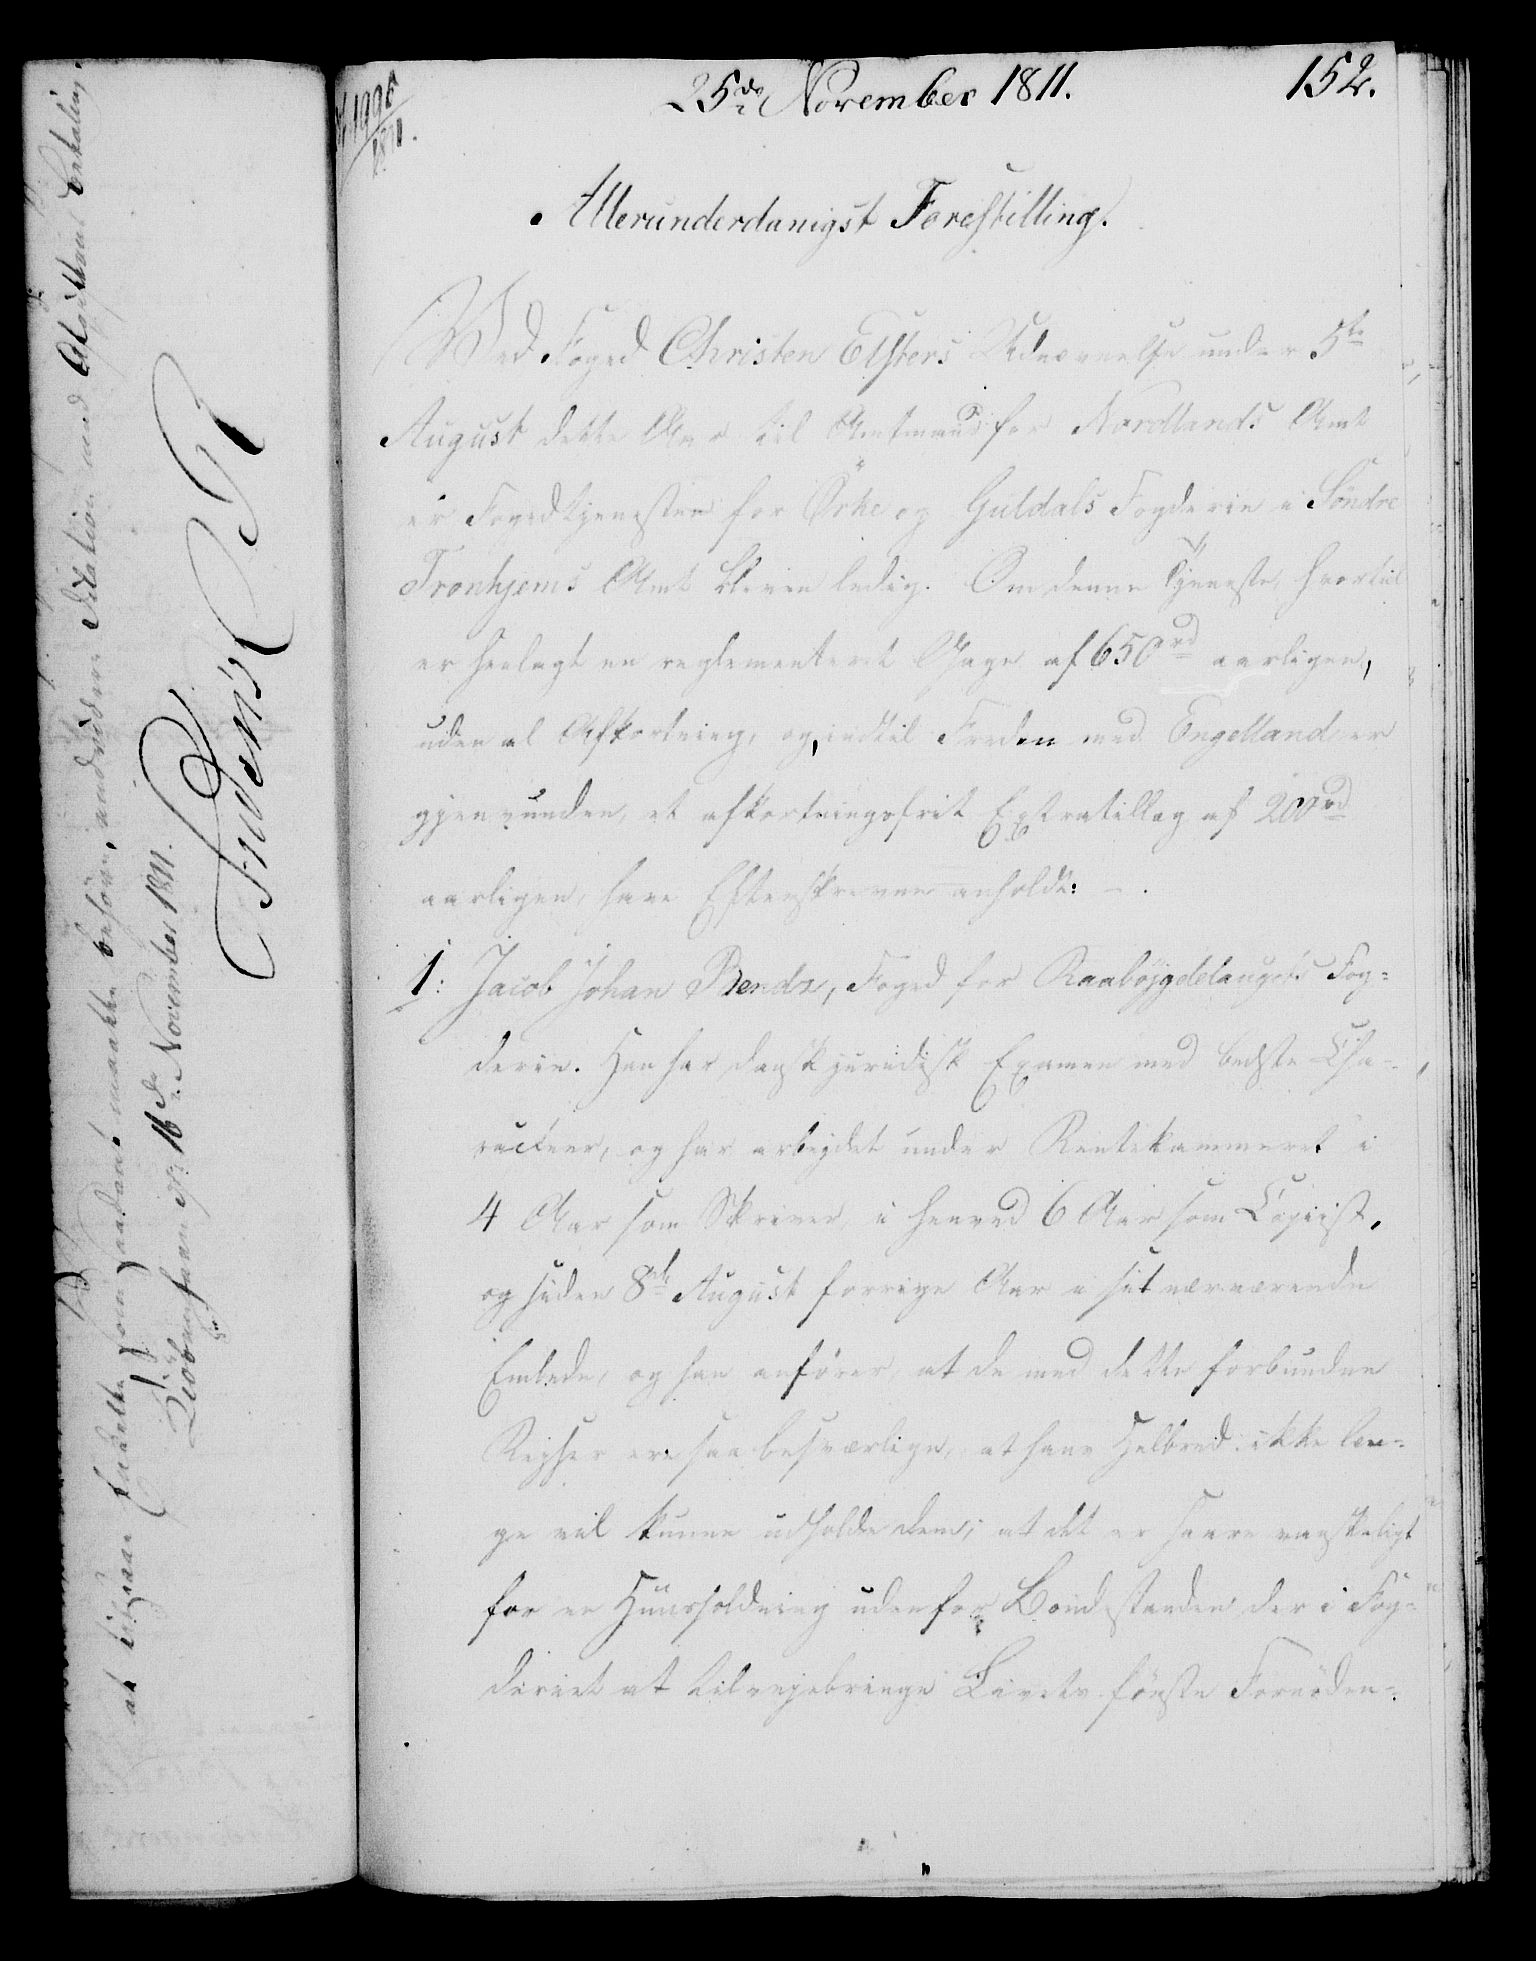 25de November 1811.
152.
1811.
Allerunderdanigst Forestilling.
Ved Foged Christen Elsters Udnævnelse under 5te
August dette Aar til Amtmand for Nordlands Amt
er Fogedtjenesten for Ørke og Guldals Fogderie i Söndre
Tronhjems Amt bleven ledig. Om denne Tjeneste, hvortil
er henlagt en reglementeret Gage af 650rd aarligen,
uden al Afkortning, og, indtil Freden med Engelland er
gjenvunden, et afkortningsfrit Extratillæg af 200rd
aarligen, have Efterskrevne anholdt: -.
1: Jacob Johan Bendz, Foged for Raabøjgdelaugets Fog-
derie. Han har dansk juridisk Examen med bedste Cha-
racteer, og har arbejdet under Rentekammeret i
4 Aar som Skriver, i henved 6 Aar som Copiist,
og siden 8de August forrige Aar i sit nærværende
Embede, og han anfører, at de med dette forbundne
Rejser ere saa besværlige, at hans Helbred ikke læn-
ge vil kunne udholde dem; at det er saare vanskeligt
for en Huusholdning udenfor Bondestanden der i Fog-
deriet at tilvejebringe Livets første Fornøden-
at tilgaae saadant maatte behøve, andviser Station med
Kiöbenhavn d. 16de November 1811.
Friderich R